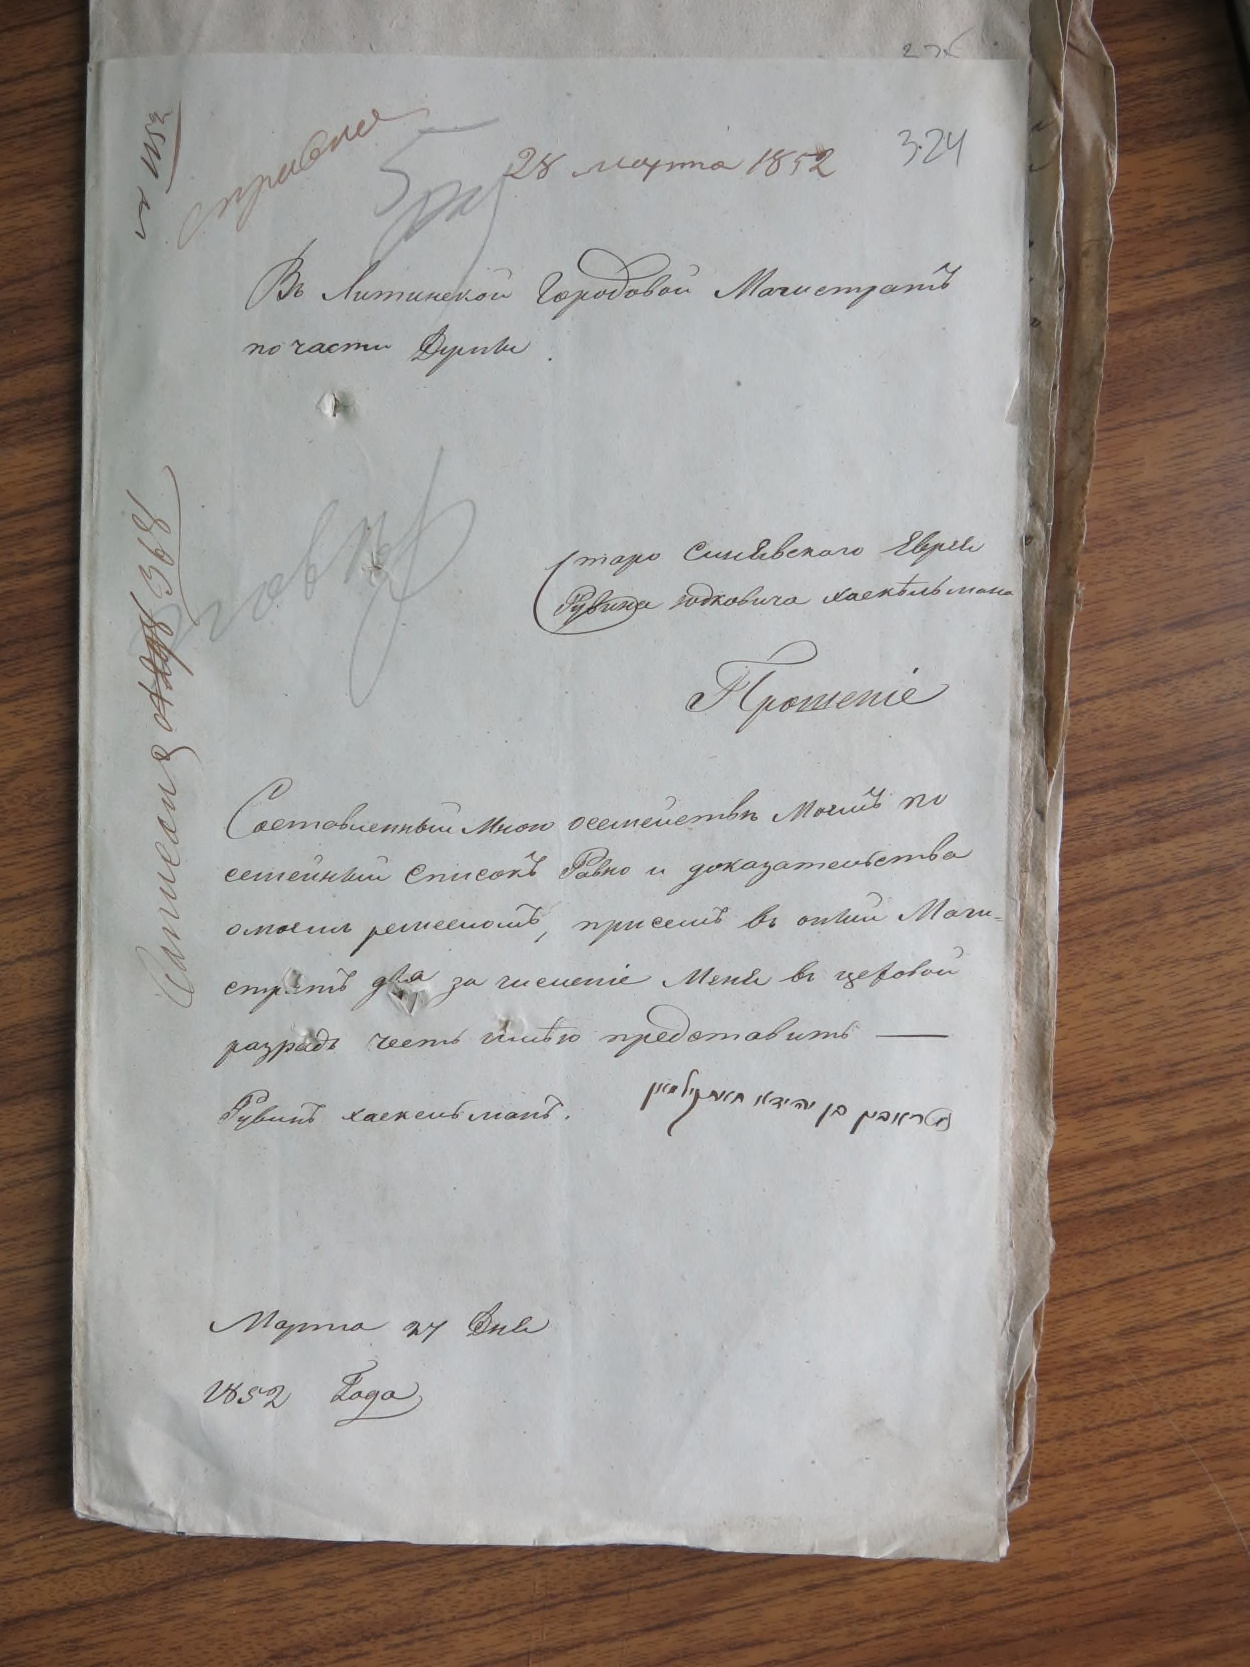 324
28 марта 1852
Въ Литинской Городовой Магистратъ
по части Думы.
Старо Синявского Еврея
Рувина Юдковича Хаскѣльмана
Прошеніе
Составленный мною осемействѣ моемъ по
семейный списокъ Равно и доказательства
омоемъ ремесломъ, присемъ въ оный Маги-
стратъ для за численіе меня въ цеховой
разрядъ честь имѣю представить —
Рувинъ Хаскельманъ. ראובין בן יהודא חאסקילמאן
Марта 27 Дня
1852 Года
368